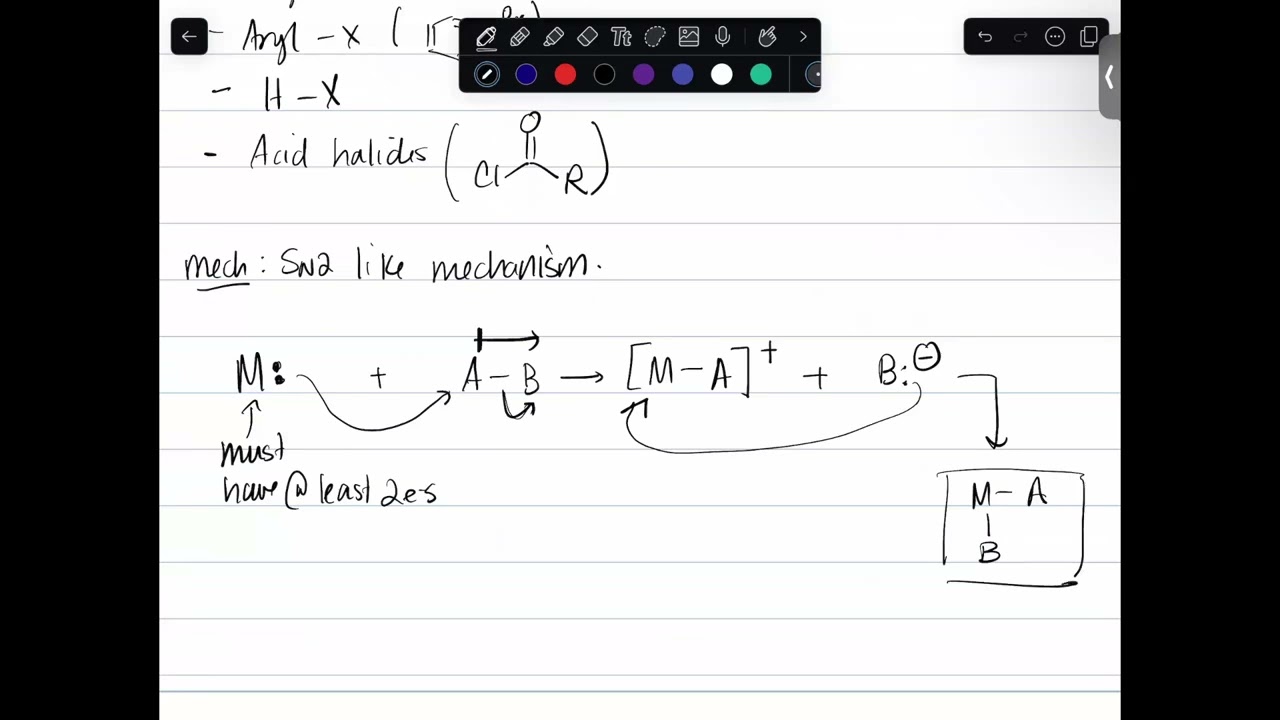 - Aryl - X (
Tt
- H - X
- Acid halides ( O Cl R )
mech : SN2 like mechanism.
M: + A - B → [M - A]+ + B:⊖
must
have @ least 2e-s
M - A
|
B